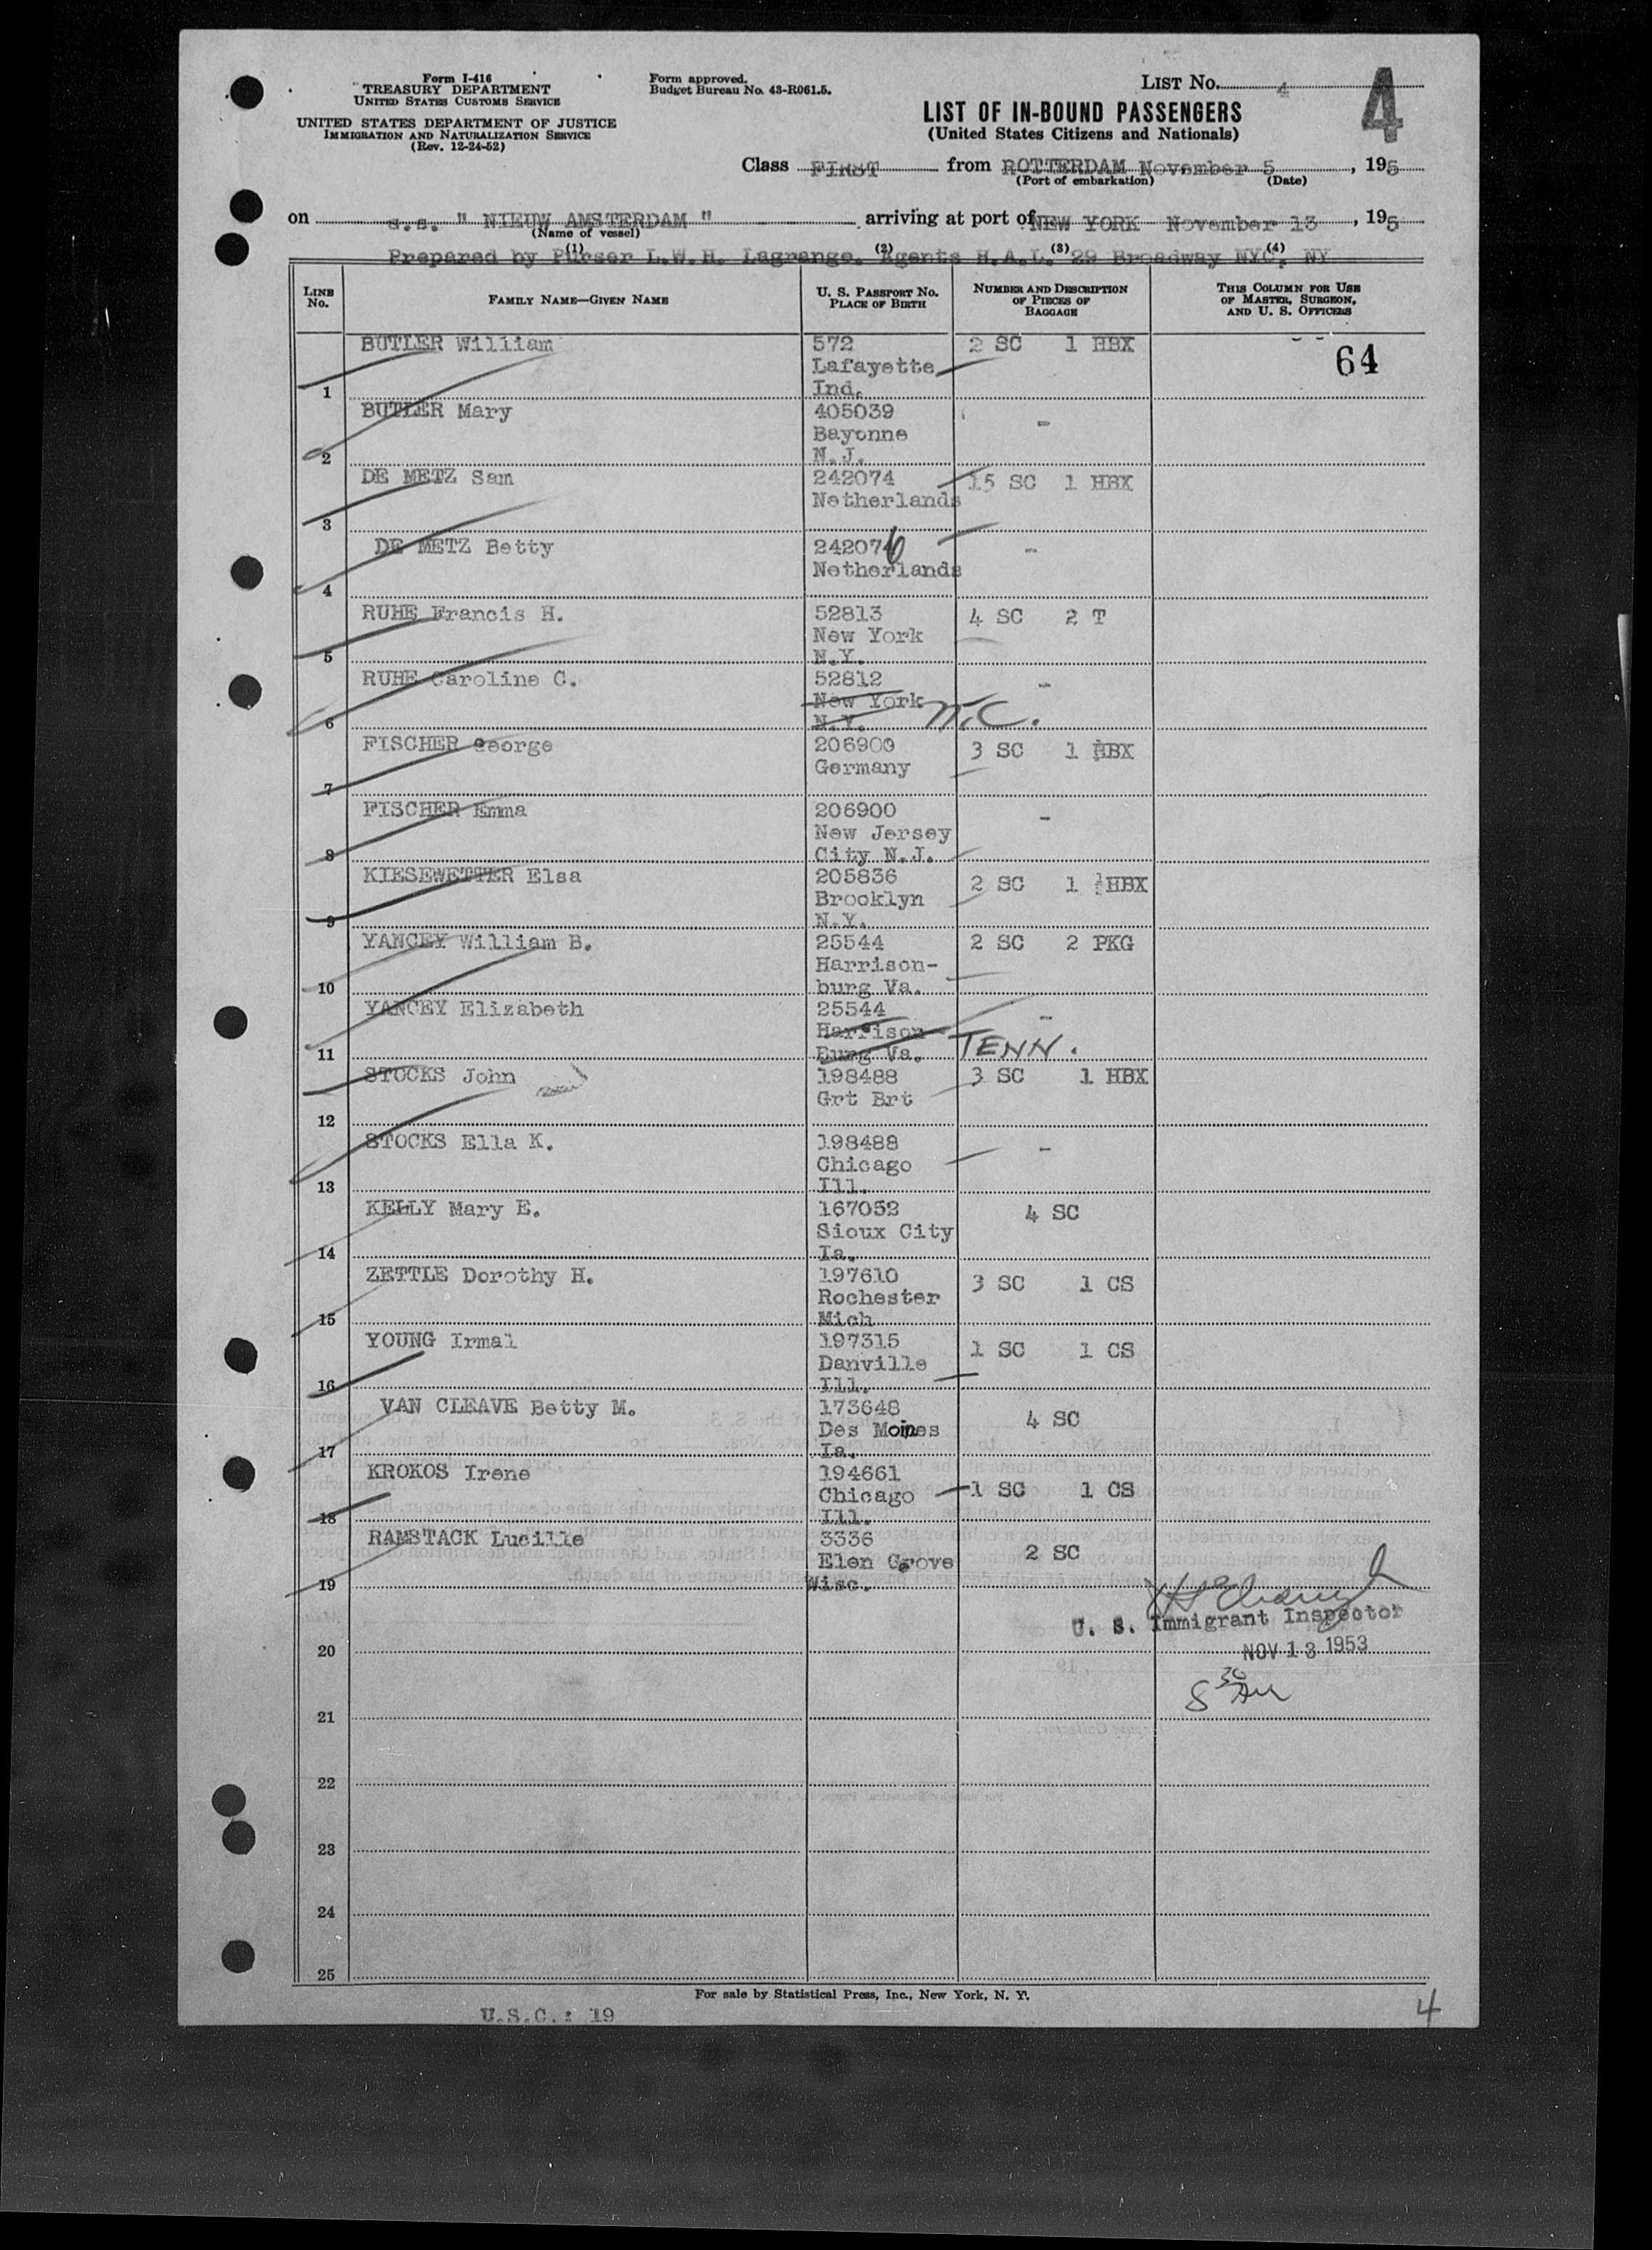 Form I-416
TREASURY DEPARTMENT
UNITED STATES CUSTOMS SERVICE
UNITED STATES DEPARTMENT OF JUSTICE
IMMIGRATION AND NATURALIZATION SERVICE
(Rev. 12-24-52)
Form approved.
Budget Bureau No. 43-R061.5.
LIST No. 4
4
LIST OF IN-BOUND PASSENGERS
(United States Citizens and Nationals)
Class FIRST from ROTTERDAM November 5, 195
(Port of embarkation) (Date)
on s.s. " NIEUW AMSTERDAM " arriving at port of NEW YORK November 13, 195
(Name of vessel)
(1) (2) (3) (4)
Prepared by Purser L.W.H. Lagrange. Agents H.A.L. 29 Broadway NYC, NY
LINE No. FAMILY NAME—GIVEN NAME U. S. PASSPORT No. PLACE OF BIRTH NUMBER AND DESCRIPTION OF PIECES OF BAGGAGE THIS COLUMN FOR USE OF MASTER, SURGEON, AND U. S. OFFICERS
BUTLER William 572 2 SC 1 HBX
64
Lafayette
1 Ind.
BUTLER Mary 405039
Bayonne -
2 N.J.
DE METZ Sam 242074 15 SC 1 HBX
Netherlands
3
DE METZ Betty 242076 -
Netherlands
4
RUHE Francis H. 52813 4 SC 2 T
New York
5 N.Y.
RUHE Caroline C. 52812 -
New York N.C.
6 N.Y.
FISCHER George 206900 3 SC 1 HBX
Germany
7
FISCHER Emma 206900 -
New Jersey
8 City N.J.
KIESEWETTER Elsa 205836 2 SC 1 ½HBX
Brooklyn
9 N.Y.
YANCEY William B. 25544 2 SC 2 PKG
Harrison-
10 burg Va.
YANCEY Elizabeth 25544 -
Harrison
11 Burg Va. TENN.
STOCKS John 198488 3 SC 1 HBX
Grt Brt
12
STOCKS Ella K. 198488 -
Chicago
13 Ill.
KELLY Mary E. 167052 4 SC
Sioux City
14 Ia.
ZETTLE Dorothy H. 197610 3 SC 1 CS
Rochester
15 Mich
YOUNG Irmal 197315 1 SC 1 CS
Danville
16 Ill.
VAN CLEAVE Betty M. 173648 4 SC
Des Moines
17 Ia.
KROKOS Irene 194661 1 SC 1 CS
Chicago
18 Ill.
RAMSTACK Lucille 3336 2 SC
Elen Grove
19 Wisc.
U. S. Immigrant Inspector
20 NOV 13 1953
8 30 AM
21
22
23
24
25
For sale by Statistical Press, Inc., New York, N. Y.
U.S.C.: 19
4